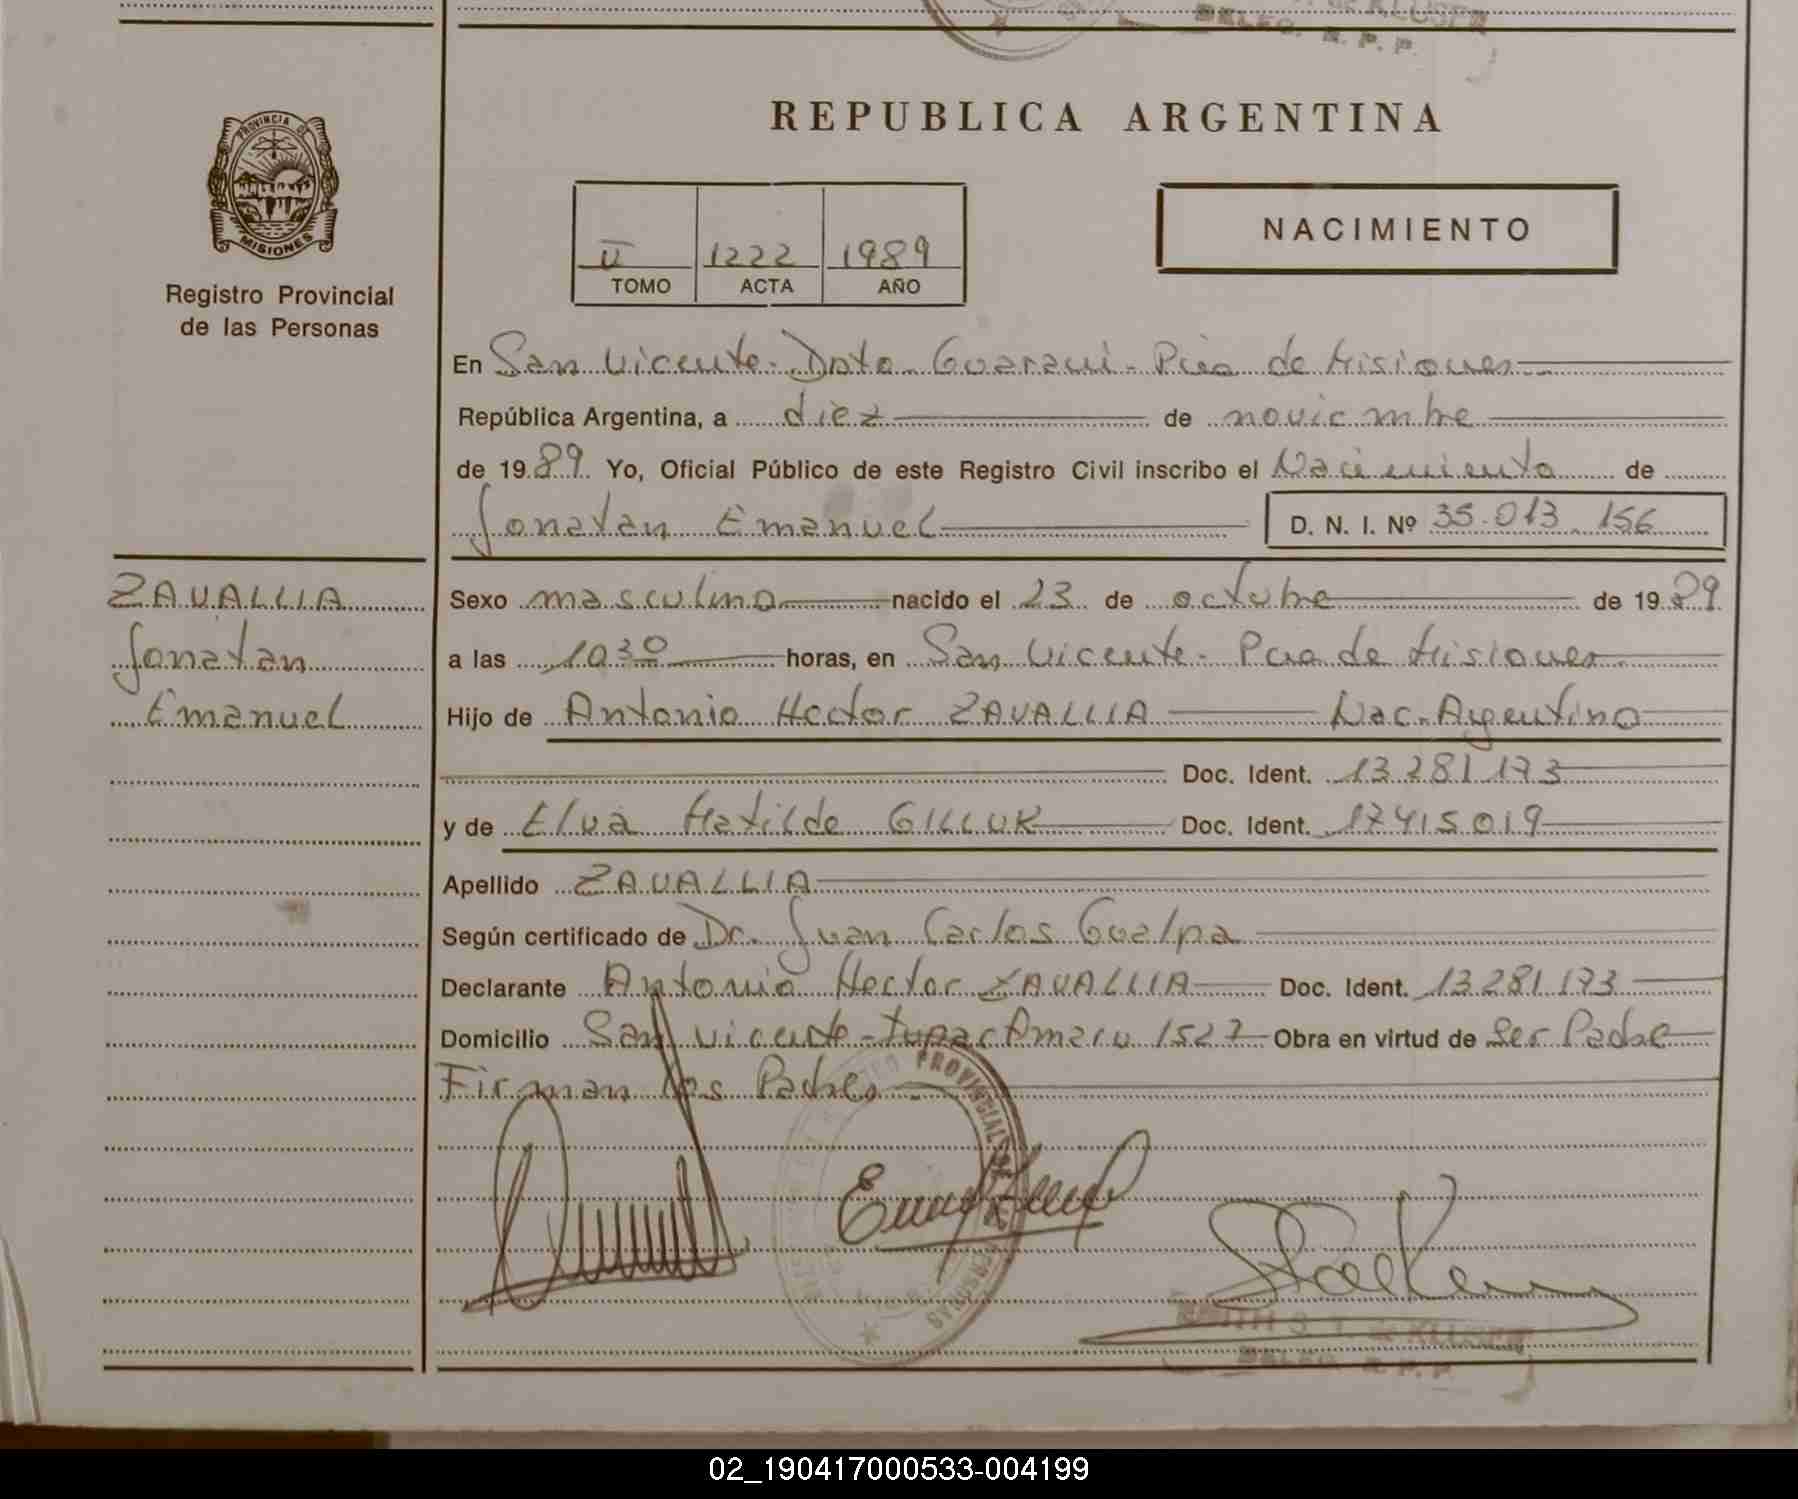 DELEG. R. P. P.
REPUBLICA ARGENTINA
PROVINCIA DE
MISIONES
Registro Provincial
de las Personas
II 1222 1989
TOMO ACTA AÑO
NACIMIENTO
En San Vicente - Dpto. Guaraní - Pcia de Misiones
República Argentina, a diez de noviembre
de 1989 Yo, Oficial Público de este Registro Civil inscribo el Nacimiento de
Jonatan Emanuel D. N. I. Nº 35.013.156
ZAVALLIA
Jonatan
Emanuel
Sexo masculino nacido el 23 de octubre de 1989
a las 10 30 horas, en San Vicente - Pcia de Misiones
Hijo de Antonio Hector ZAVALLIA Nac. Argentino
Doc. Ident. 13 281 173
y de Elva Matilde GILLUK Doc. Ident. 17415019
Apellido ZAVALLIA
Según certificado de Dr. Juan Carlos Gualpa
Declarante Antonio Hector ZAVALLIA Doc. Ident. 13281173
Domicilio San Vicente - Tupac Amaru 1527 Obra en virtud de Ser Padre
Firman los Padres
PROVINCIAL
DELEG. R. P. P.
02_190417000533-004199